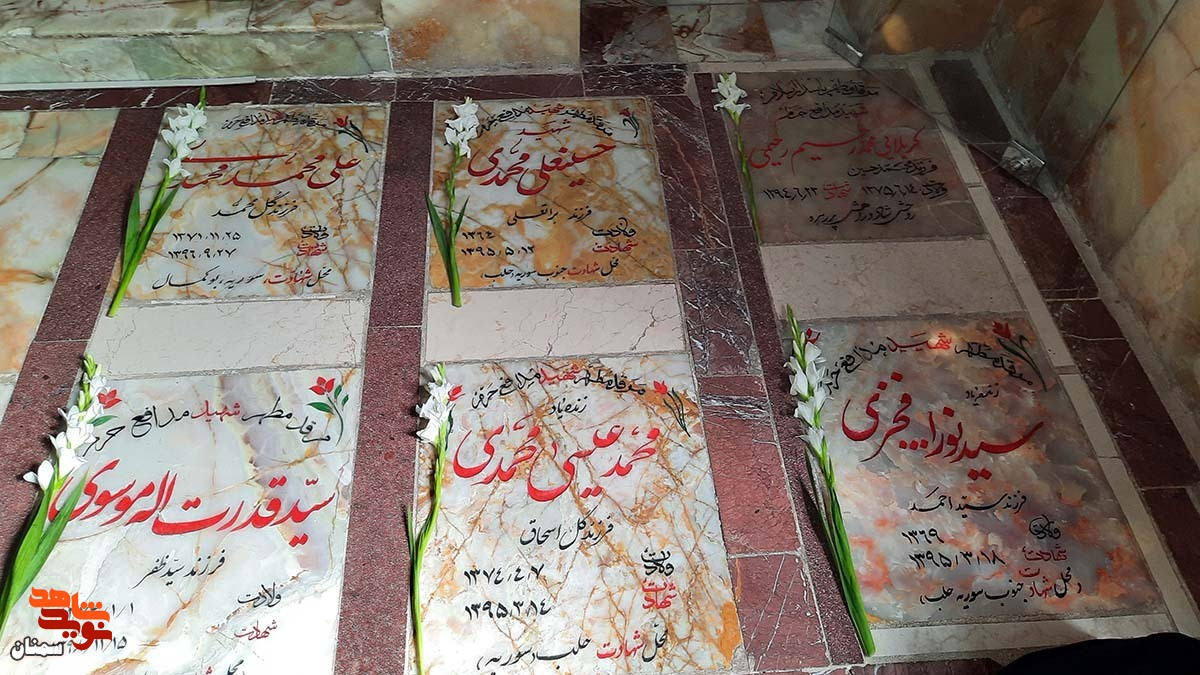 مرقد مطهر شهید مدافع حرم
کربلایی محمد نسیم رحیمی
فرزند محمد حسین
ولادت ۱۳۷۵،۶،۱۴ شهادت ۱۳۹۴،۶،۲۳
مرقد مطهر مدافع حرم
شهید
حسینعلی محمدی
فرزند براتعلی
ولادت ۱۳۶۴
شهادت ۱۳۹۵،۵،۱۳
محل شهادت جنوب سوریه (حلب)
مرقد مطهر مدافع حرم
علی محمد محمدی
فرزند گل محمد
ولادت ۱۳۷۱،۱۱،۲۵
شهادت ۱۳۹۶،۹،۲۷
محل شهادت، سوریه، بوکمال
مرقد مطهر شهید مدافع حرم
زنده یاد
سید نورآقا فخری
فرزند سید احمد
ولادت ۱۳۶۹
شهادت ۱۳۹۵،۳،۱۸
محل شهادت جنوب سوریه حلب
مرقد مطهر شهید مدافع حرم
زنده یاد
محمد عیسی محمدی
فرزند گل اسحاق
ولادت ۱۳۷۴،۴،۷
شهادت ۱۳۹۵،۳،۱۴
محل شهادت حلب (سوریه)
مرقد مطهر شهید مدافع حرم
سیّد قدرت اله موسوی
فرزند سیّد ظفر
ولادت
شهادت
نوید شاهد
سمنان